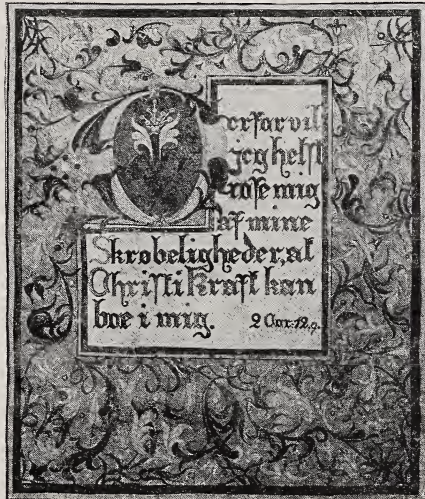 Derfor vil
jeg helst
rose mig
af mine
Skrobeligheder, at
Christi Kraft kan
boe i mig. 2 Cor. 12,9.